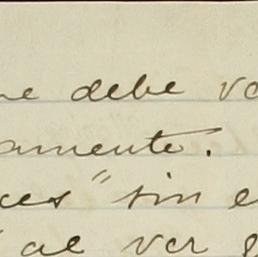 ne debe vo
amente.
ces "sin e
" al ver g